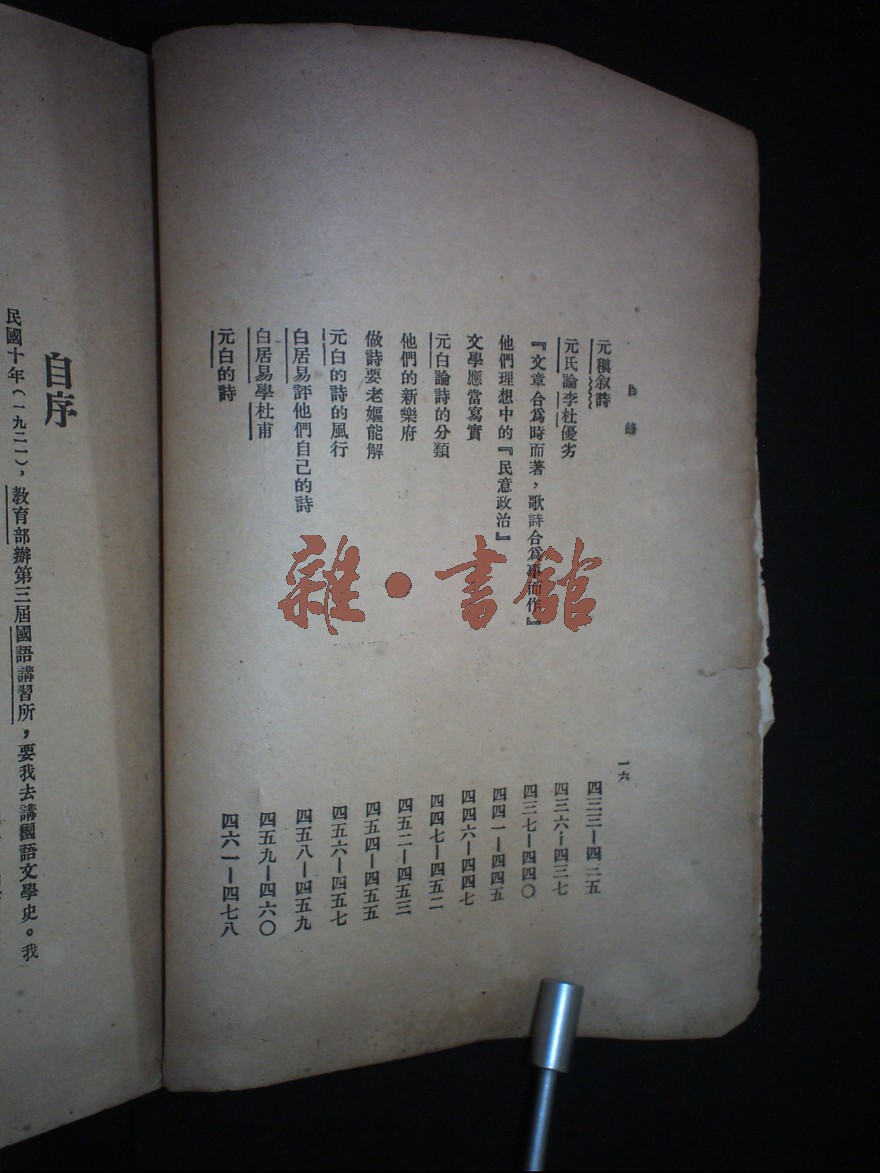 目錄
一六
元稹敘詩 四三三—四三五
元氏論李杜優劣 四三六—四三七
『文章合爲時而著，歌詩合爲事而作』 四三七—四四〇
他們理想中的『民意政治』 四四一—四四五
文學應當寫實 四四六—四四七
元白論詩的分類 四四七—四五二
他們的新樂府 四五二—四五三
做詩要老嫗能解 四五四—四五五
元白的詩的風行 四五六—四五七
白居易評他們自己的詩 四五八—四五九
白居易學杜甫 四五九—四六〇
元白的詩 四六一—四七八
雜·書館
自序
民國十年（一九二一），教育部辦第三屆國語講習所，要我去講國語文學史。我